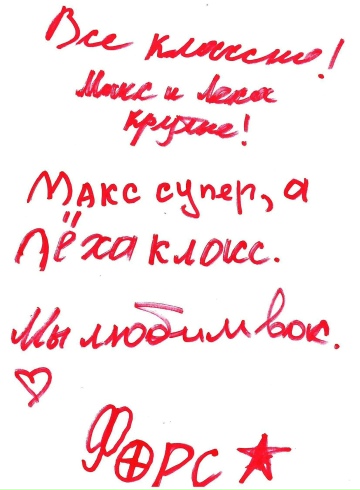 Все классно!
Макс и Леха
крутые!
Макс супер, а
Лёха класс.
Мы любим вас.
Форс